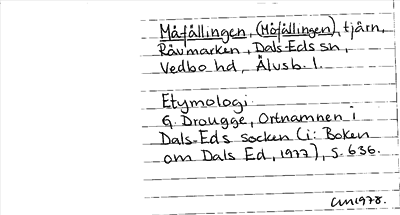 Måfållingen, (Mófållingen), tjärn,
Råvmarken, Dals-Eds sn,
Vedbo hd, Älvsb. l.
Etymologi
G. Drougge, Ortnamnen i
Dals-Eds socken (i: Boken
om Dals Ed, 1977), s. 636.
1978.